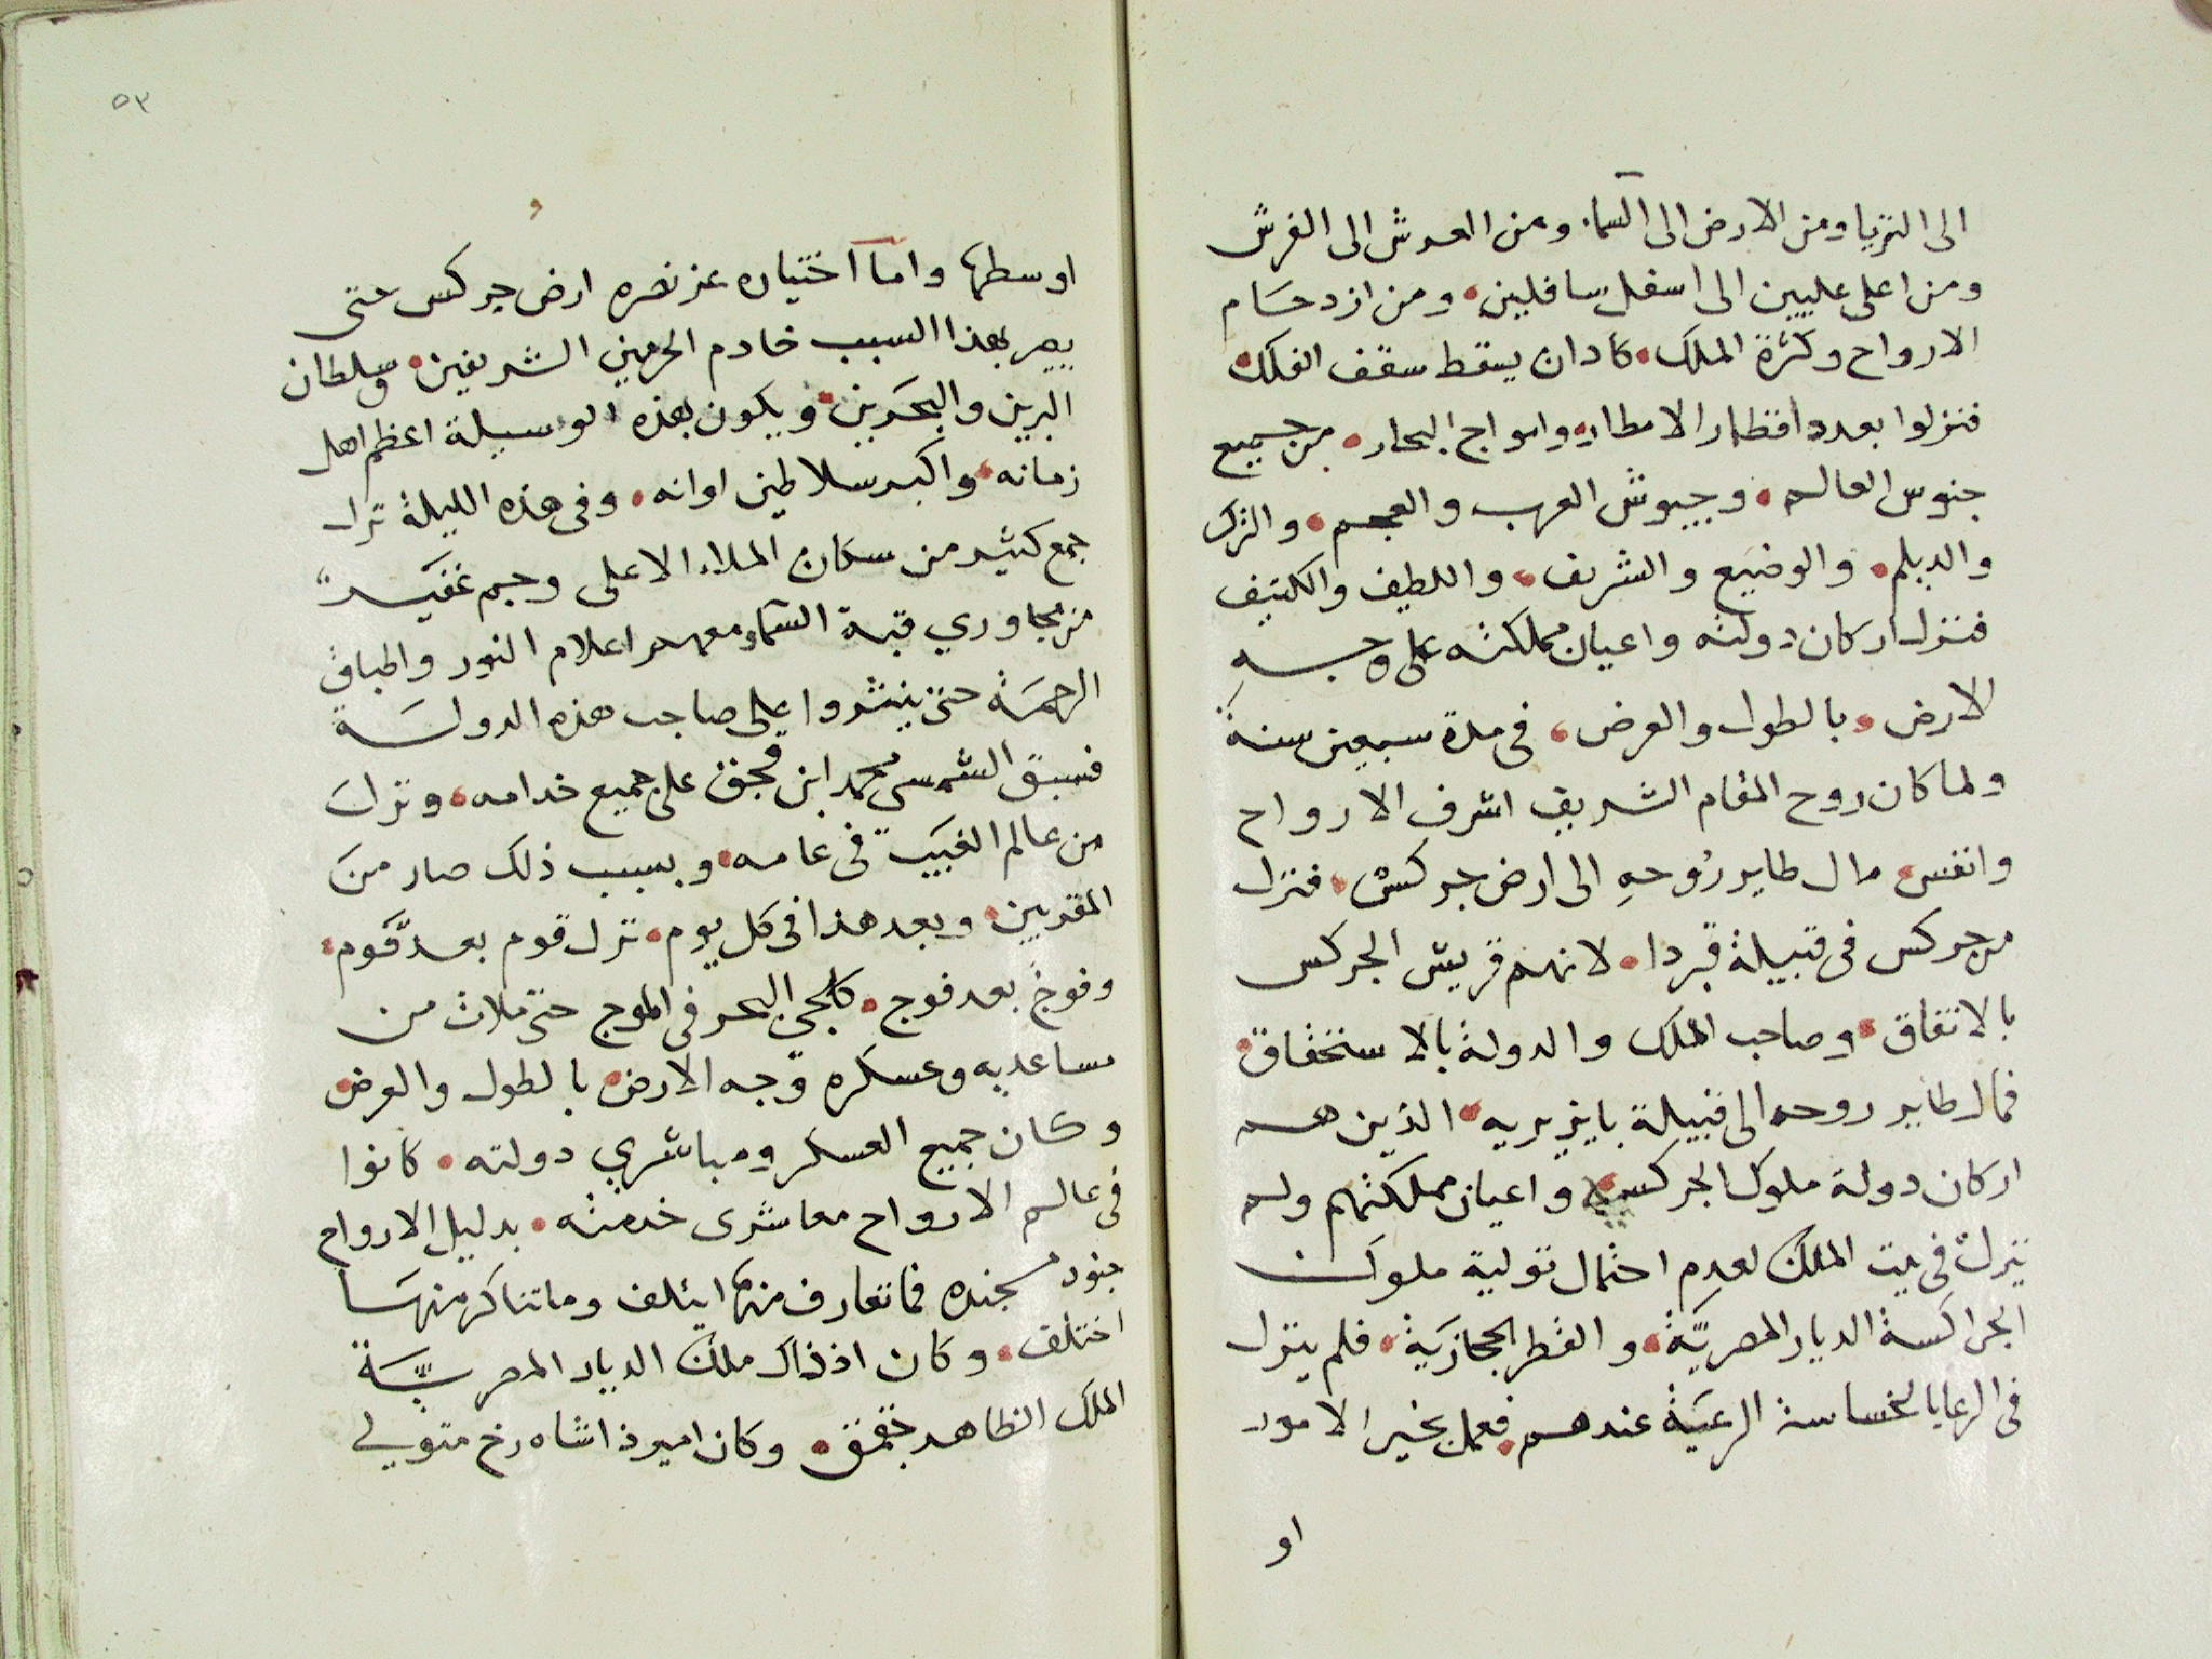 الى الثريا ومن الارض الى السما ومن العرش الى الفرش
ومن اعلى عليين الى اسفل سافلين ومن ازدحام
الارواح وكثرة الملك كاد ان يسقط سقف الفلك
فنزلوا بعدد اقطار الامطار وامواج البحار من جميع
جنوس العالم وجيوش العرب والعجم والترك
والديلم والوضيع والشريف واللطيف والكثيف
فنزل اركان دولته واعيان مملكته على وجه
الارض بالطول والعرض في مدة سبعين سنة
ولما كان روح المقام الشريف اشرف الارواح
وانفس مال طاير رُوحهِ الى ارض جركس فنزل
من جركس في قبيلة قبردا لانهم قريش الجركس
بالاتفاق وصاحب الملك والدولة بالاستحقاق
فمال طاير روحه الى قبيلة بايزيريه الذين هم
اركان دولة ملوك الجركسيه واعيان مملكتهم ولم
ينزل في بيت الملك لعدم احتمال تولية ملوك
الجراكسة الديار المصريّة والقطر الحجازية فلم ينزل
في الرعايا لخساسة الرعيَة عندهم فعمل بخير الامور
او
٥٣
اوسطها واما اختياره عز نصره ارض جركس حتى
يصير بهذا السبب خادم الحرمين الشريفين وسلطان
البرين والبحَرين ويكون بهذه الوسيلة اعظم اهل
زمانه واكبر سلاطين اوانه وفي هذه الليلة نزل
جمع كثير من سكان الملاء الاعلى وجم غفير
من مجاوري قبة السماء معهم اعلام النور واطباق
الرحمَة حتى ينثروا على صاحب هذه الدولة
فسبق الشمسي محمد ابن قجق على جميع خدامه ونزل
من عالم الغيَب في عامه وبسبب ذلك صار منَ
المقربين وبعد هذا في كل يوم نزل قوم بعد قوم
وفوج بعد فوج كلجى البحر في الموج حتى ملات من
مساعديه وعسكره وجه الارض بالطول والعرض
وكان جميع العسكر ومباشري دولته كانوا
في عالم الارواح معاشرى خدمته بدليل الارواح
جنود مجنده فما تعارف منها ايتلف وما تناكر منهَا
اختلف وكان اذ ذاك ملك الديار المصريّة
الملك الظاهر جقمق وكان اميرذا شاه رخ متولي